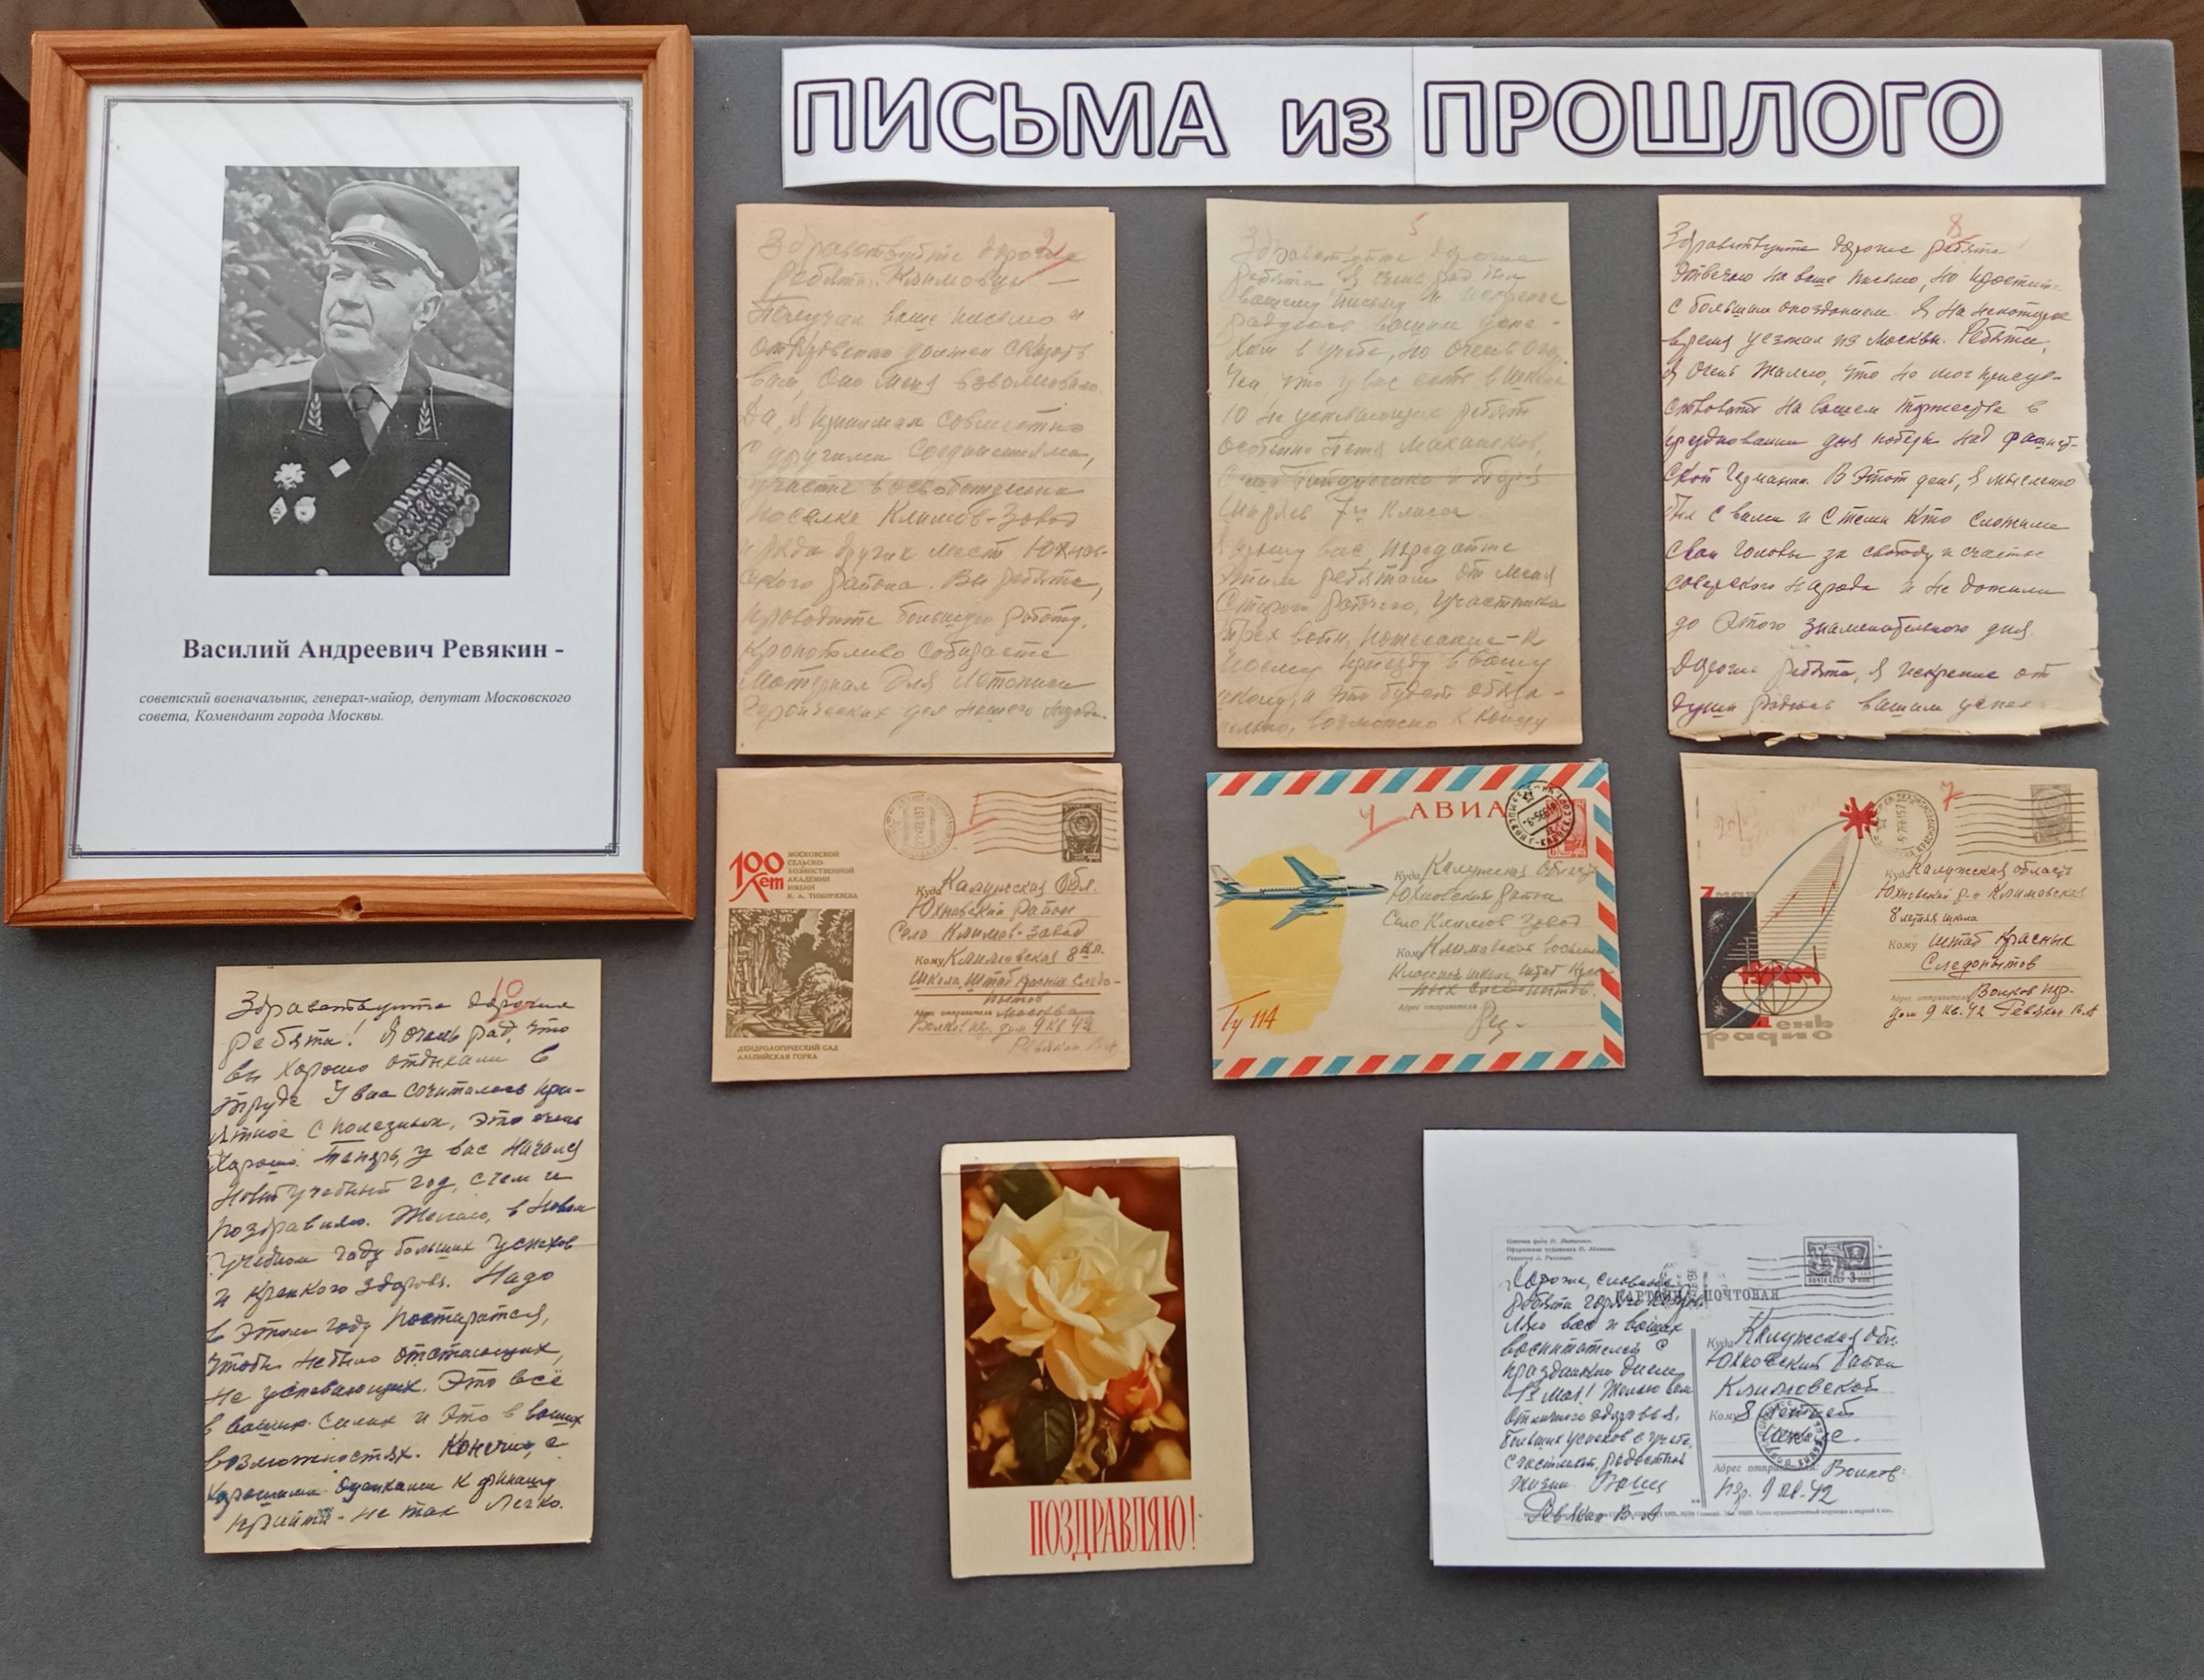 ПИСЬМА из ПРОШЛОГО
Василий Андреевич Ревякин -
советский военачальник, генерал-майор, депутат Московского
совета, Комендант города Москвы.
2
Здравствуйте дорогие
ребята. Климовцы —
Получил ваше письмо и
откровенно должен сказать
вам, оно меня взволновало.
Да, я принимал совместно
с другими соединениями,
участие в освобождении
поселка Климов-Завод
и ряда других мест Юхнов-
ского района. Вы ребята,
проводите большую работу,
кропотливо собираете
материал для летописи
героических дел нашего народа.
5
Здравствуйте дорогие
ребята. Я очень рад был
вашему письму и искренне
радуюсь вашим успе-
хам в учебе, но очень огор
чен, что у вас есть в школе
10 не успевающих ребят
особенно Петя
и
7го класса.
Я прошу вас, передайте
этим ребятам от меня
старого рабочего, участника
трех войн, пожелание - к
моему приезду в вашу
школу, и это будет обяза-
тельно, возможно к концу
8
Здравствуйте дорогие ребята!
Отвечаю на ваше письмо, но простите
с большим опозданием. Я на некоторое
время уезжал из Москвы. Ребята,
я очень жалею, что не мог присут-
ствовать на вашем торжестве в
праздновании дня победы над фашист-
ской Германии. В этот день, я мысленно
был с вами и с теми кто сложили
свои головы за свободу и счастье
советского народа и не дожили
до этого знаменательного дня.
Дорогие ребята, я искренне от
души радуюсь вашим успех
100
лет
МОСКОВСКОЙ
СЕЛЬСКО-
ХОЗЯЙСТВЕННОЙ
АКАДЕМИИ
ИМЕНИ
К. А. ТИМИРЯЗЕВА
ДЕНДРОЛОГИЧЕСКИЙ САД
АЛЬПИЙСКАЯ ГОРКА
1
Куда Калужская Обл.
Юхновский Район
Село Климов-Завод
Кому Климовская 8 кл.
Школа, Штаб красных следо-
пытов
Адрес отправителя Москва
Волков пер. дом 9 кв 42
Ревякин В.А.
4
АВИА
Ту 114
Куда Калужская Область
Юхновский Район
Село Климов Завод
Кому Климовская восьми
классная школа Штаб Крас-
ных следопытов.
Адрес отправителя
7
7 мая
День
радио
Куда Калужская область
Юхновский р-н Климовская
8 летняя школа
Кому Штаб Красных
Следопытов
Адрес отправителя Волков пер.
дом 9 кв. 42 Ревякин В.А
10
Здравствуйте дорогие
Ребята! Я очень рад, что
вы хорошо отдыхали в
труде. У вас сочиталось при-
ятное с полезным, это очень
хорошо. Теперь, у вас начался
новый учебный год, с чем и
поздравляю. Желаю, в новом
учебном году больших успехов
и крепкого здоровья. Надо
в этом году постаратся,
чтобы не было отстающих,
не успевающих. Это всё
в ваших силах и это в ваших
возможностях. Конечно, с
хорошими оценками к финишу
прийти - не так легко.
ПОЗДРАВЛЯЮ!
КАРТОЧКА ПОЧТОВАЯ
Дорогие, славные
ребята горячо поздрав
ляю вас и ваших
воспитателей с
праздничным днем
1е Мая! Желаю вам
отличного здоровья,
больших успехов в учебе,
счастливой, радостной
жизни. Ваш
Ревякин В. А
Куда Калужская обл.
Юхновский Район
Климовской
Кому 8 летней
школе.
Адрес отправителя: Волков
пер. 9 кв. 42